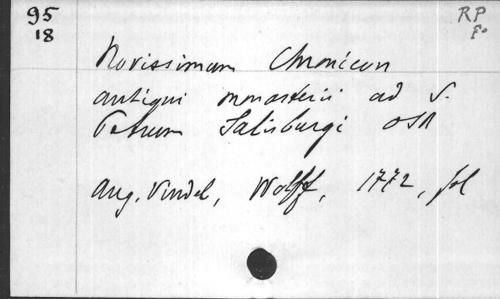 95
18
RP
Fo
Novissimum Chronicon
antiqui monasterii ad S.
Petrum Salisburgi OSA
Aug. Vindel, Wolff, 1772, fol